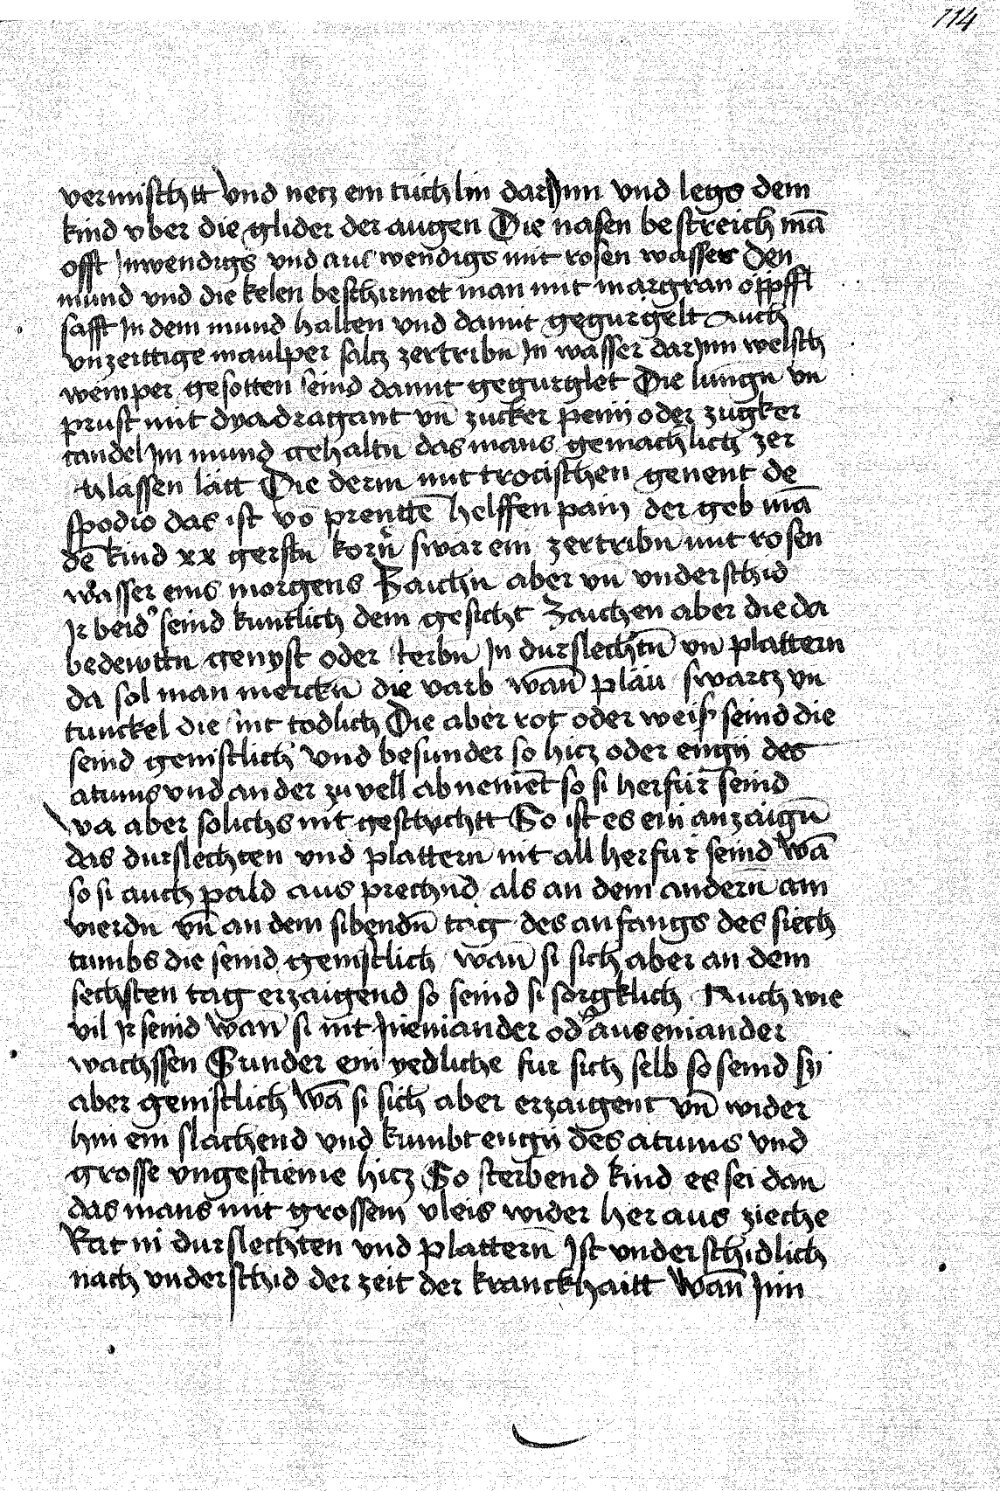 114
vermischtt vnd necz ein tuchlin darJnn vnd legs dem
kind vber die glider der augen Die nasen bestreich mā
offt Jnwendigs vnd auswendigs mit rosen wasser Den
mund vnd die kelen beschirmet man mit margran öppffl
safft Jn dem mund halten vnd damit gegurgelt Auch
vnzeittige maulper saltz zertribn Jn wasser darJnn welsch
wemper gesotten seind damit gegurglet Die lungn vn
prust mit dyadragant vn̄ zucker penij oder zugker
candel Jm mund gehaltn das mans gemachlich zer
lassen lätt Die derm mit trocischen genent de
spodio das ist vō prenttē helffen pain der geb mā
dē kind xx gerstn korn̄ swar ein zertribn mit rosen
wasser eins morgens Zaichn aber vn̄ vnderschid
Jr beid seind kuntlich dem gesicht Zaichen aber die da
bedewttn genyst oder sterbn Jn durslechtn̄ vn̄ plattern
da sol man merckn̄ die varb wan̄ pläu swartz vn
tunckel die sint todlich Die aber rot oder weiß seind die
seind genistlich vnd besunder so hicz oder engij des
atums vnd ander zuvell abnemēt so si herfür seind
wa aber solichs nit geschicht So ist es ein anzaigūn
das durslechten vnd plattern nit all herfur seind Wā
so si auch pald aus prechnd als an dem andern̄ am
vierdn vn̄ an dem sibendn̄ tag des anfangs des siech
tumbs die seind genistlich wan̄ si sich aber an dem
sechsten tag erzaigend so seind si sorgklich Auch wie
vil Jr seind wan̄ si nit Jneniander od auseniander
wachssen Sunder ein yedliche fur sich selb so seind sy
aber genistlich Wā si sich aber erzaigent vn̄ wider
hin ein slachend vnd kumbt engij des atums vnd
grosse vngestieme hicz So sterbend kind es sei dan
das mans mit grossem vleis wider her aus zieche
Rat in durslechten vnd plattern̄ Jst vnderschidlich
nach vnderschid der zeit der kranckhaitt Wan̄ Jnn